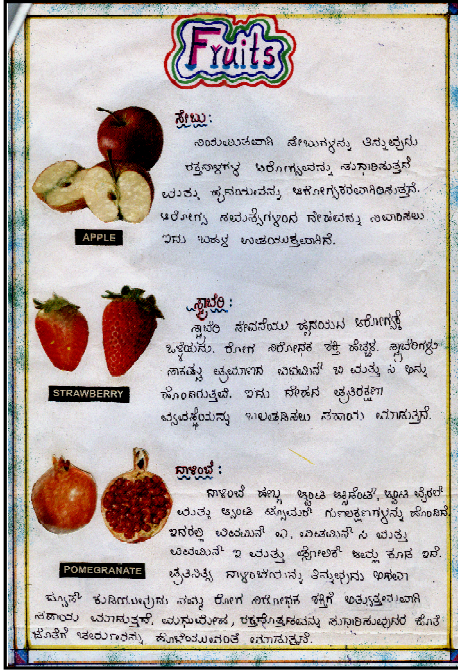 Fruits
ಸೇಬು:
ನಿಯಮಿತವಾಗಿ ಸೇಬುಗಳನ್ನು ತಿನ್ನುವುದು
ರಕ್ತನಾಳಗಳ ಆರೋಗ್ಯವನ್ನು ಸುಧಾರಿಸುತ್ತದೆ
ಮತ್ತು ಹೃದಯವನ್ನು ಆರೋಗ್ಯಕರವಾಗಿರಿಸುತ್ತದೆ.
ಆರೋಗ್ಯ ಸಮಸ್ಯೆಗಳಿಂದ ದೇಹವನ್ನು ನಿವಾರಿಸಲು
ಇದು ಬಹಳ ಉಪಯುಕ್ತವಾಗಿದೆ.
APPLE
ಸ್ಟ್ರಾಬೆರಿ:
ಸ್ಟ್ರಾಬೆರಿ ಸೇವನೆಯು ಹೃದಯದ ಆರೋಗ್ಯಕ್ಕೆ
ಒಳ್ಳೆಯದು. ರೋಗ ನಿರೋಧಕ ಶಕ್ತಿ ಹೆಚ್ಚಿಸಿ. ಸ್ಟ್ರಾಬೆರಿಗಳು
ಸಾಕಷ್ಟು ಪ್ರಮಾಣದ ವಿಟಮಿನ್ ಬಿ ಮತ್ತು ಸಿ ಅನ್ನು
ಹೊಂದಿರುತ್ತವೆ. ಇದು ದೇಹದ ಪ್ರತಿರಕ್ಷಣಾ
ವ್ಯವಸ್ಥೆಯನ್ನು ಬಲಪಡಿಸಲು ಸಹಾಯ ಮಾಡುತ್ತದೆ.
STRAWBERRY
ದಾಳಿಂಬೆ:
ದಾಳಿಂಬೆ ಹಣ್ಣು ಆ್ಯಂಟಿ ಆಕ್ಸಿಡೆಂಟ್, ಆ್ಯಂಟಿ ವೈರಲ್
ಮತ್ತು ಆ್ಯಂಟಿ ಟ್ಯೂಮರ್ ಗುಣಲಕ್ಷಣಗಳನ್ನು ಹೊಂದಿದೆ
ಇದರಲ್ಲಿ ವಿಟಮಿನ್ ಎ, ವಿಟಮಿನ್ ಸಿ ಮತ್ತು
ವಿಟಮಿನ್ ಇ ಮತ್ತು ಫೋಲಿಕ್ ಆಮ್ಲ ಕೂಡ ಇದೆ.
ಪ್ರತಿನಿತ್ಯ ದಾಳಿಂಬೆಯನ್ನು ತಿನ್ನುವುದು ಅಥವಾ
POMEGRANATE
ಜ್ಯೂಸ್ ಕುಡಿಯುವುದು ನಮ್ಮ ರೋಗ ನಿರೋಧಕ ಶಕ್ತಿಗೆ ಅತ್ಯುತ್ತಮವಾಗಿ
ಸಹಾಯ ಮಾಡುತ್ತದೆ, ಮಧುಮೇಹ, ರಕ್ತದೊತ್ತಡವನ್ನು ಸುಧಾರಿಸುವುದರ ಜೊತೆ
ಜೊತೆಗೆ ಚರ್ಮವನ್ನು ಹೊಳೆಯುವಂತೆ ಮಾಡುತ್ತದೆ.